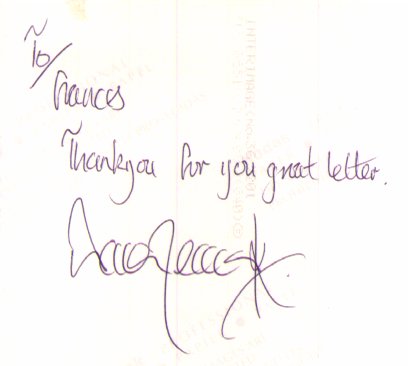 To/
Frances
Thankyou for you great letter.